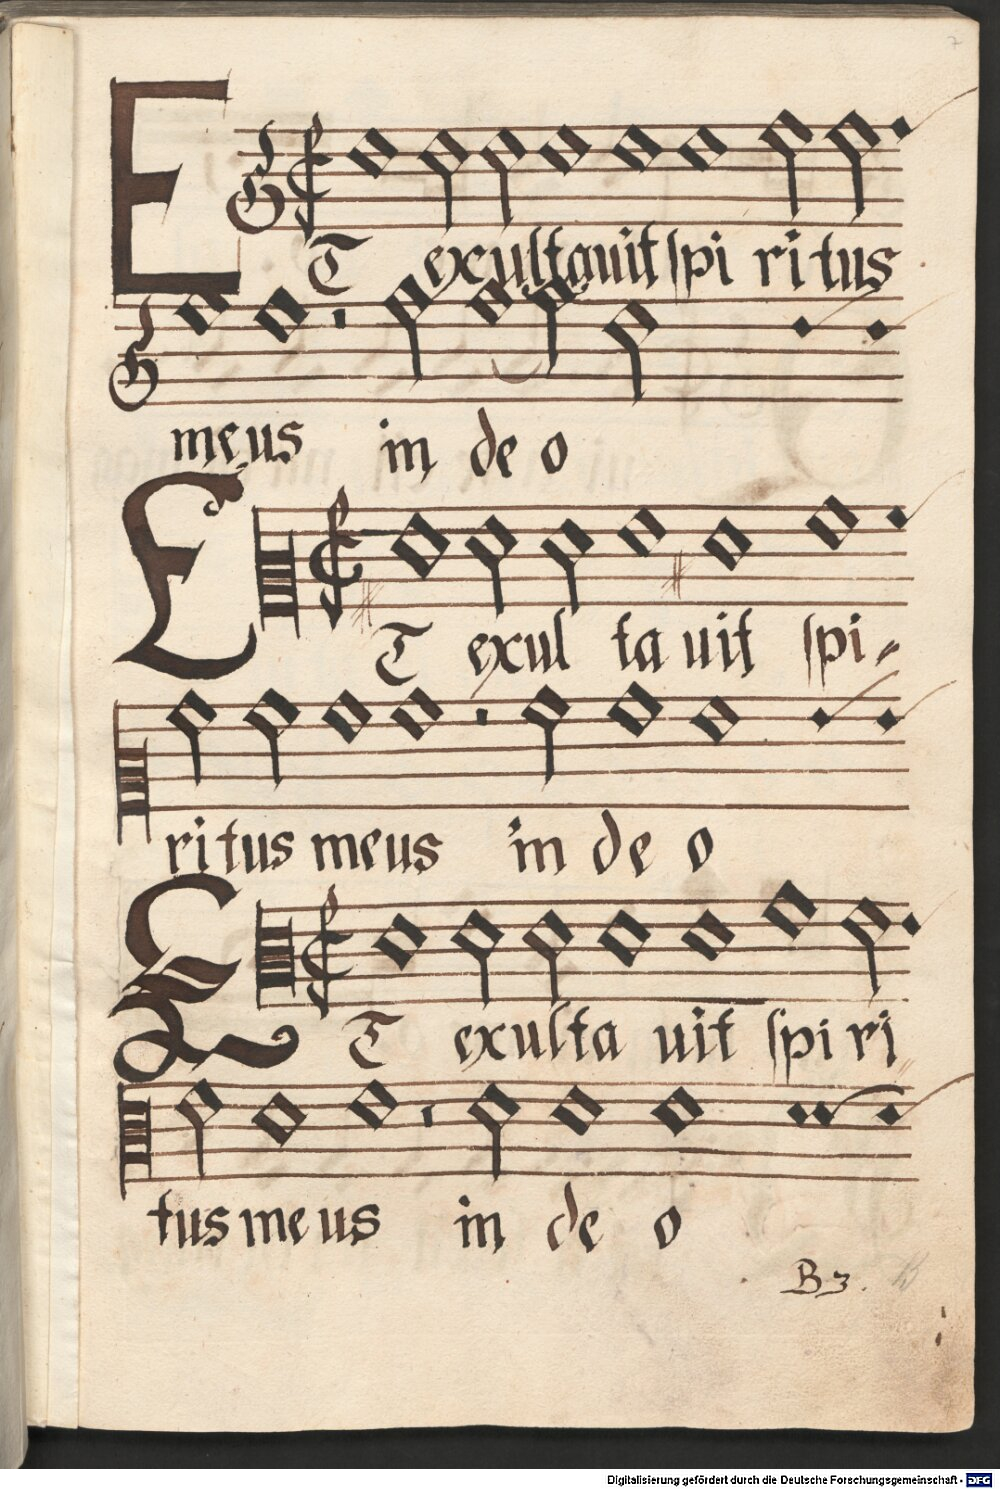 ET exultauit spi ritus
meus in de o
ET exul ta uit spi-
ritus meus in de o
ET exulta uit spi ri
tus me us in de o
B 3.
Digitalisierung gefördert durch die Deutsche Forschungsgemeinschaft - DFG